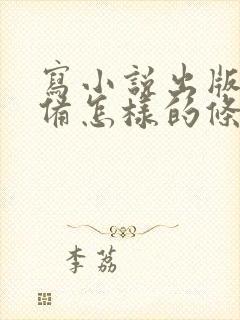 寫小說出版
備怎樣的條
李荔